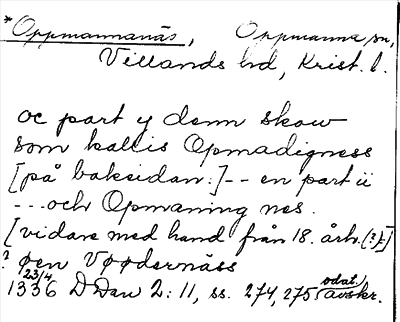 *Oppmannanäs, Oppmanna sn,
Villands hd, Krist. l.
oc part y denn skow
som kallis Opmadigness
[på baksidan:] -- en part ii
--- och Opmaning nes.
[vidare med hand från 18. årh. (?):]
? øen Vøødernäss
1336 23/4 D Dan 2:11, ss. 274, 275 (odat. avskr.